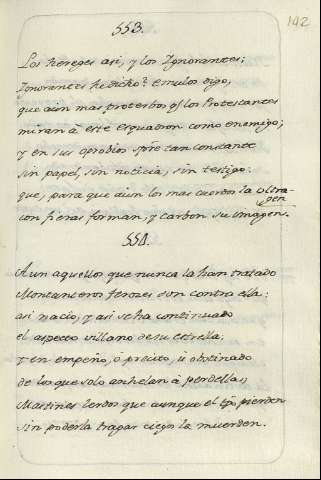 142
553.
Los hereges asi, y los Ygnorantes;
Ygnorantes he dicho? emulos digo,
que aun mas protervos q.e los Protestantes
miran à este esquadron como enemigo;
y en sus oprobios spre tan constante
sin papel, sin noticia, sin testigo.
que, para que aun los mas cuerdos la ultra-
gen
con fieras forman, y carbon su imagen.
554.
Aun aquellos que nunca la han tratado
Monteros feroces son contra ella:
asi nacio, y asi se ha continuado
el aspecto villano de su estrella:
y en empeño, ò precito, ù obstinado
de los que solo anhelan à perdella,
Mastines lerdos que aunque el tpo pierden
sin poderla tragar ciegos la muerden.